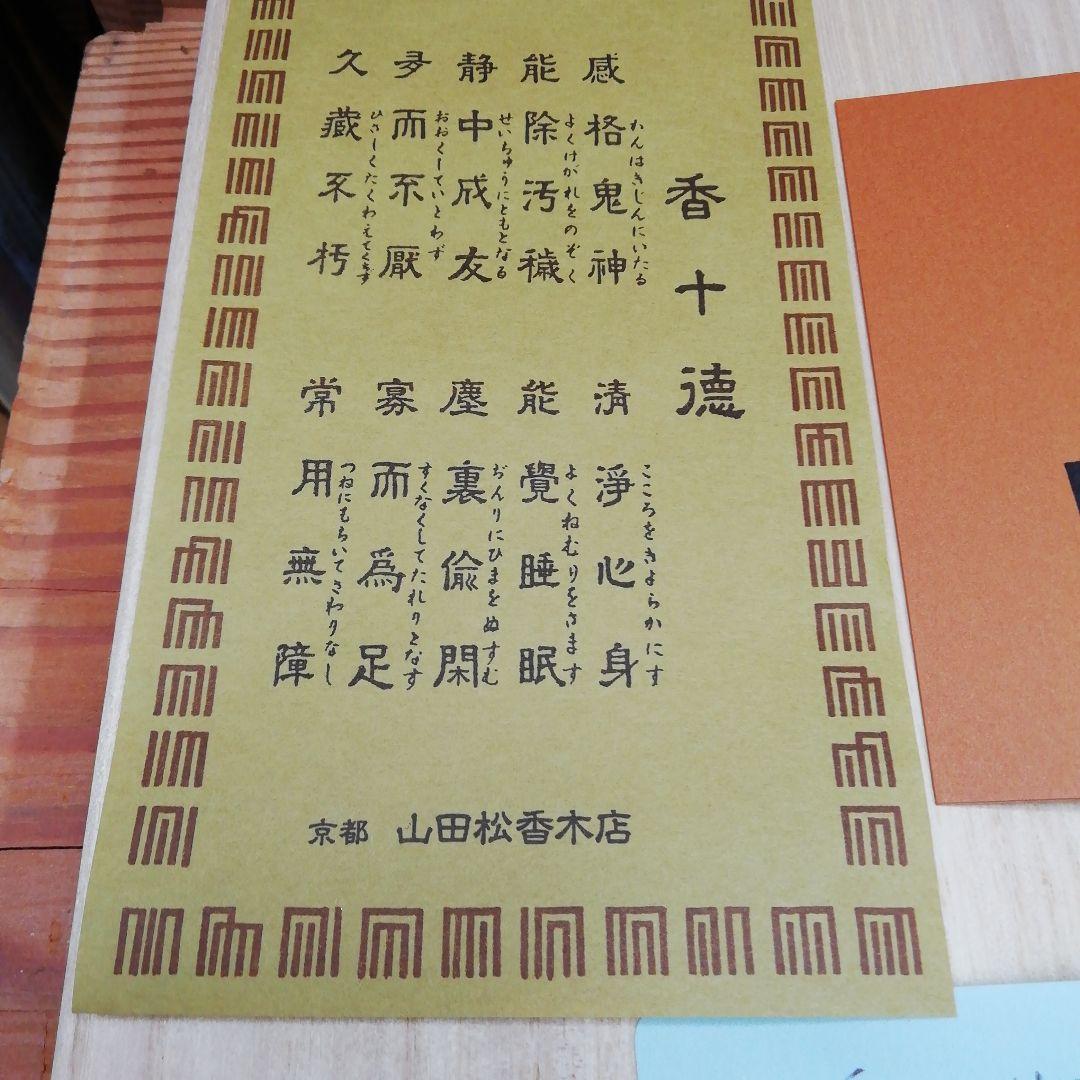 香十徳
感格鬼神
かんはきじんにいたる
清淨心身
こころをきよらかにす
能除汚穢
よくけがれをのぞく
能覺睡眠
よくねむりをさます
静中成友
せいちゅうにともとなる
塵裏偸閑
ぢんりにひまをぬすむ
多而不厭
おおくしていとわず
寡而為足
すくなくしてたれりとなす
久藏不朽
ひさしくたくわえてくちず
常用無障
つねにもちいてさわりなし
京都 山田松香木店